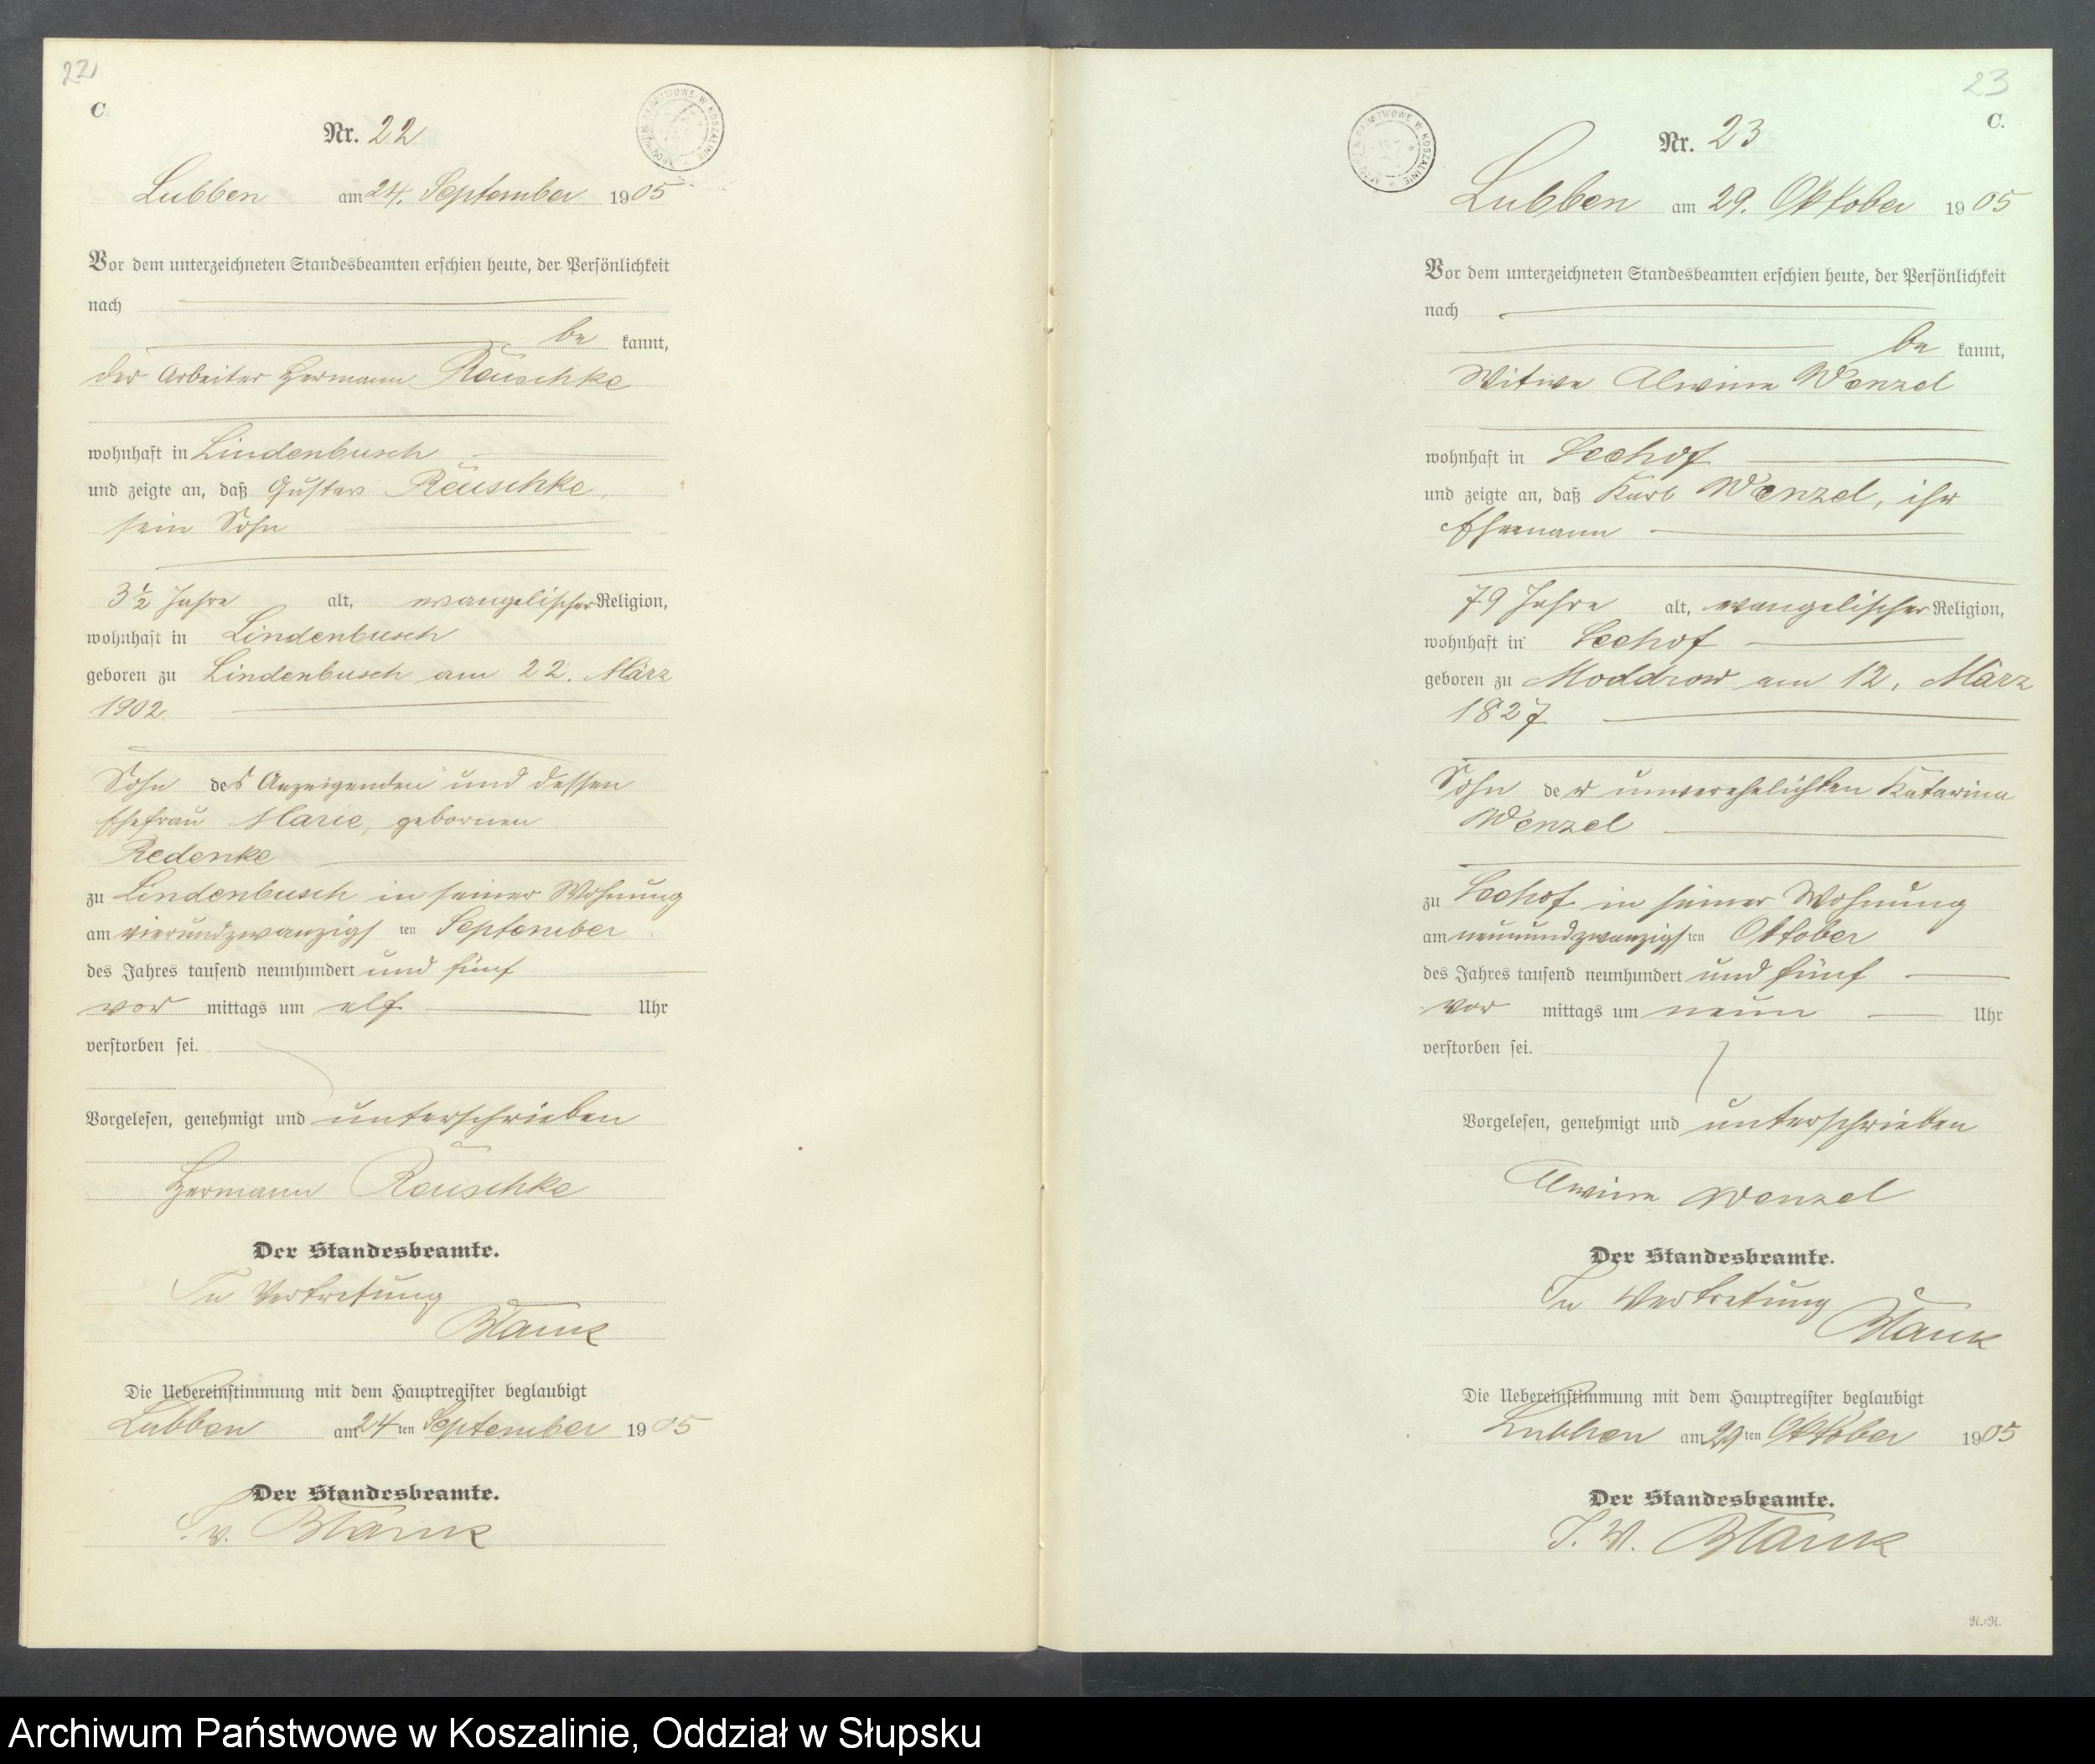 22
C
Nr. 22
Lubben am 24. September 1905
Vor dem unterzeichneten Standesbeamten erschien heute, der Persönlichkeit
nach
be kannt,
der Arbeiter Hermann Reuschke
wohnhaft in Lindenbusch
und zeigte an, daß Gustav Reuschke,
sein Sohn
3½ Jahre alt, evangelischer Religion,
wohnhaft in Lindenbusch
geboren zu Lindenbusch am 22. März
1902
Sohn des Anzeigenden und dessen
Ehefrau Marie, gebornen
Redenke
zu Lindenbusch in seiner Wohnung
am vierundzwanzigsten September
des Jahres tausend neunhundert und fünf
vor mittags um elf Uhr
verstorben sei.
Vorgelesen, genehmigt und unterschrieben
Hermann Reuschke
Der Standesbeamte.
In Vertretung
Blank
Die Uebereinstimmung mit dem Hauptregister beglaubigt
Lubben am 24ten September 1905
Der Standesbeamte.
I. V. Blank
23
C.
Nr. 23
Lubben am 29. Oktober 1905
Vor dem unterzeichneten Standesbeamten erschien heute, der Persönlichkeit
nach
be kannt,
Witwe Alwine Wenzel
wohnhaft in Seehof
und zeigte an, daß Karl Wenzel, ihr
Ehemann
79 Jahre alt, evangelischer Religion,
wohnhaft in Seehof
geboren zu Moddrow am 12. März
1827
Sohn der unverehelichten Katarina
Wenzel
zu Seehof in seiner Wohnung
am neunundzwanzigsten Oktober
des Jahres tausend neunhundert und fünf
vor mittags um neun Uhr
verstorben sei.
Vorgelesen, genehmigt und unterschrieben
Alwine Wenzel
Der Standesbeamte.
In Vertretung
Blank
Die Uebereinstimmung mit dem Hauptregister beglaubigt
Lubben am 29ten Oktober 1905
Der Standesbeamte.
I. V. Blank
R.-R.
Archiwum Państwowe w Koszalinie, Oddział w Słupsku